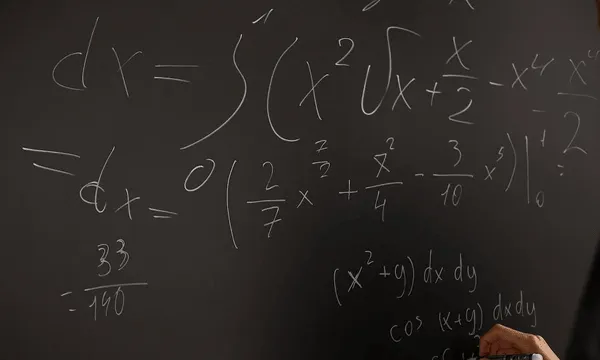 dx = ∫₀¹ (x²√x + x/2 - x⁴ - x⁴/2
= dx = (2/7 x^(7/2) + x²/4 - 3/10 x⁵)|₀¹ =
= 33/140
(x² + y) dx dy
cos (x+y) dx dy